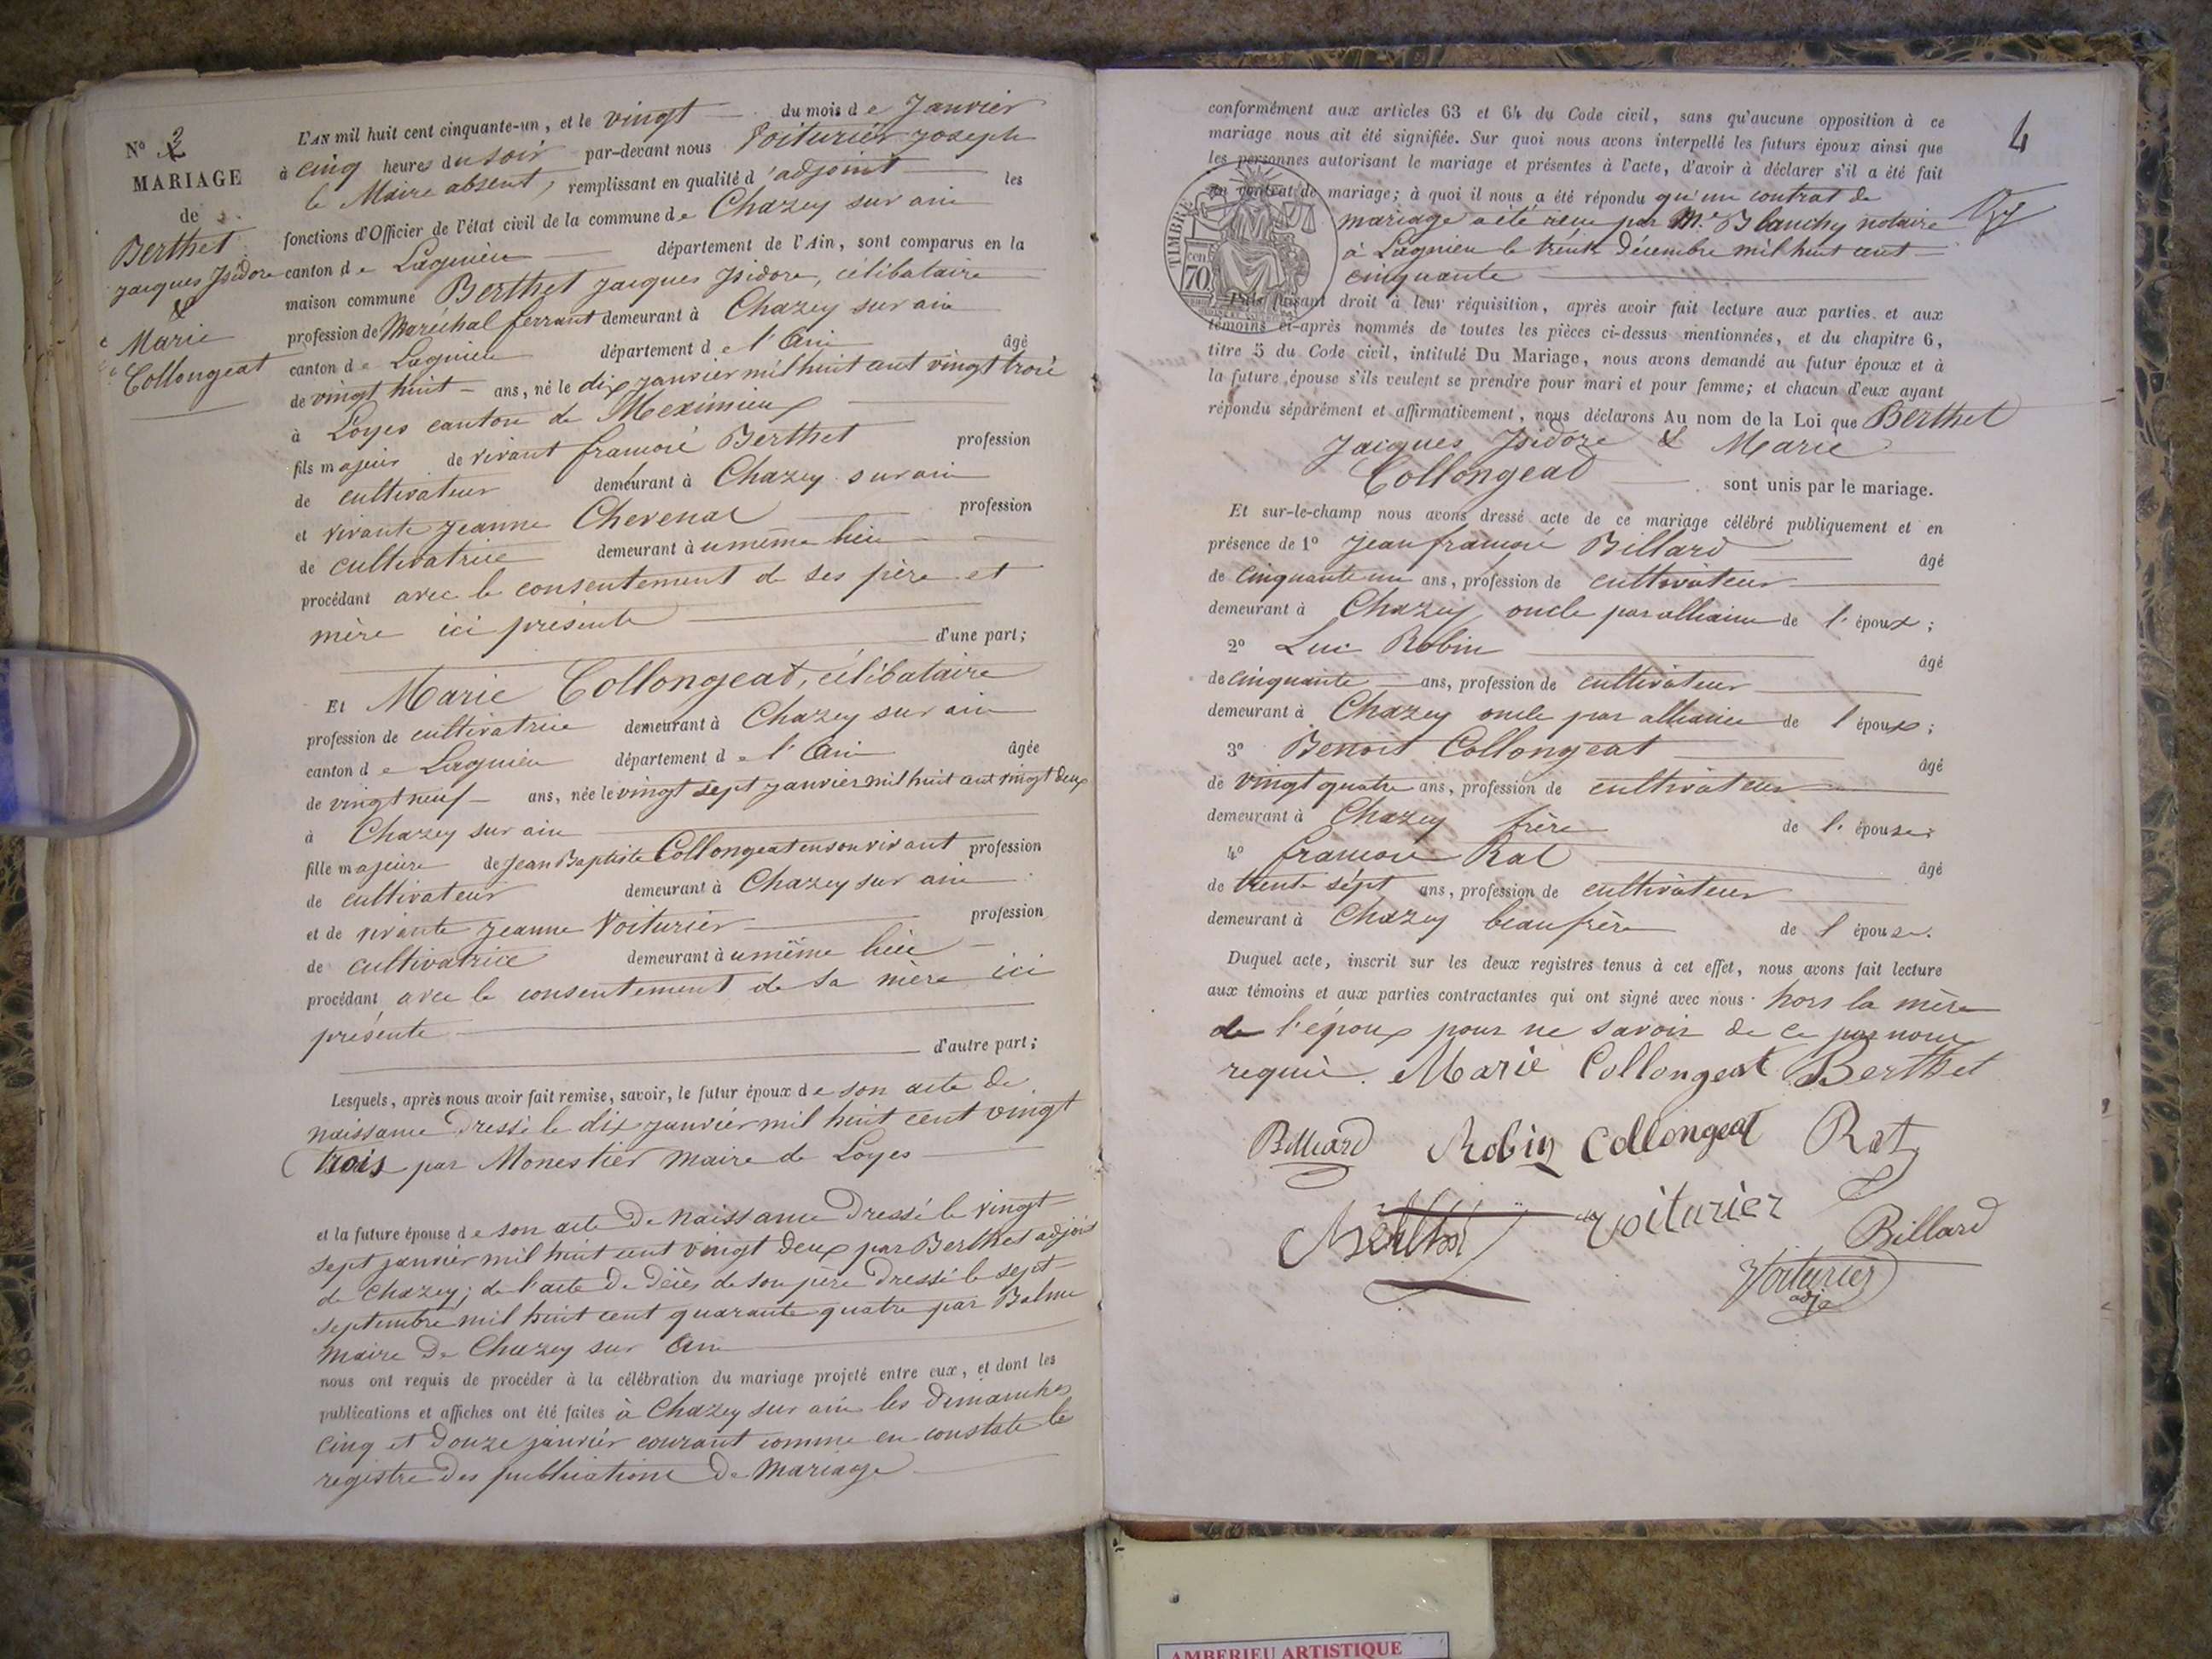 N° 2
MARIAGE
de
Berthet
Jacques Isidore
&
Marie
Collongeat
L'AN mil huit cent cinquante-un, et le vingt du mois de Janvier
à cinq heures du soir par-devant nous Voiturier Joseph
le Maire absent, remplissant en qualité d'adjoint les
fonctions d'Officier de l'état civil de la commune de Chazey sur ain
canton de Lagnieu département de l'Ain, sont comparus en la
maison commune Berthet Jacques Isidore, célibataire
profession de Maréchal ferrant demeurant à Chazey sur ain
canton de Lagnieu département de l'Ain âgé
de vingt huit ans, né le dix janvier mil huit cent vingt trois
à Loyes canton de Meximieux
fils majeur de vivant françois Berthet profession
de cultivateur demeurant à Chazey sur ain
et vivante jeanne Chevenal profession
de cultivatrice demeurant à u même lieu
procédant avec le consentement de ses père et
mère ici présents
d'une part;
Et Marie Collongeat, célibataire
profession de cultivatrice demeurant à Chazey sur ain
canton de Lagnieu département de l'Ain âgée
de vingt neuf ans, née le vingt sept janvier mil huit cent vingt deux
à Chazey sur ain
fille majeure de Jean Baptiste Collongeat en son vivant profession
de cultivateur demeurant à Chazey sur ain
et de vivante jeanne Voiturier profession
de cultivatrice demeurant à u même lieu
procédant avec le consentement de sa mère ici
présente
d'autre part;
Lesquels, après nous avoir fait remise, savoir, le futur époux de son acte de
naissance dressé le dix janvier mil huit cent vingt
trois par Monestier maire de Loyes
et la future épouse de son acte de naissance dressé le vingt
sept janvier mil huit cent vingt deux par Berthet adjoint
de Chazey; de l'acte de décès de son père dressé le sept
septembre mil huit cent quarante quatre par Balme
maire de Chazey sur Ain
nous ont requis de procéder à la célébration du mariage projeté entre eux, et dont les
publications et affiches ont été faites à Chazey sur ain les dimanches
cinq et douze janvier courant comme en constate le
registre des publications de mariage
4
conformément aux articles 63 et 64 du Code civil, sans qu'aucune opposition à ce
mariage nous ait été signifiée. Sur quoi nous avons interpellé les futurs époux ainsi que
les personnes autorisant le mariage et présentes à l'acte, d'avoir à déclarer s'il a été fait
un contrat de mariage; à quoi il nous a été répondu qu'un contrat de
mariage a été reçu par Me Blanchy notaire
à Lagnieu le trente Décembre mil huit cent
cinquante
TIMBRE
70 cen
Puis faisant droit à leur réquisition, après avoir fait lecture aux parties et aux
témoins ci-après nommés de toutes les pièces ci-dessus mentionnées, et du chapitre 6,
titre 5 du Code civil, intitulé Du Mariage, nous avons demandé au futur époux et à
la future épouse s'ils veulent se prendre pour mari et pour femme; et chacun d'eux ayant
répondu séparément et affirmativement, nous déclarons Au nom de la Loi que Berthet
Jacques Isidore & Marie
Collongeat sont unis par le mariage.
Et sur-le-champ nous avons dressé acte de ce mariage célébré publiquement et en
présence de 1° Jean françois Billard âgé
de cinquante un ans, profession de cultivateur
demeurant à Chazey oncle par alliance de l'époux;
2° Luc Robin âgé
de cinquante ans, profession de cultivateur
demeurant à Chazey oncle par alliance de l'époux;
3° Benoit Collongeat âgé
de vingt quatre ans, profession de cultivateur
demeurant à Chazey frère de l'épouse;
4° françois Rat âgé
de trente sept ans, profession de cultivateur
demeurant à Chazey beau frère de l'épouse.
Duquel acte, inscrit sur les deux registres tenus à cet effet, nous avons fait lecture
aux témoins et aux parties contractantes qui ont signé avec nous hors la mère
de l'époux pour ne savoir de ce par nous
requis. Marie Collongeat Berthet
Billiard Robin Collongeat Rat
Berthet Voiturier Billard
Voiturier
adj
AMBERIEU ARTISTIQUE